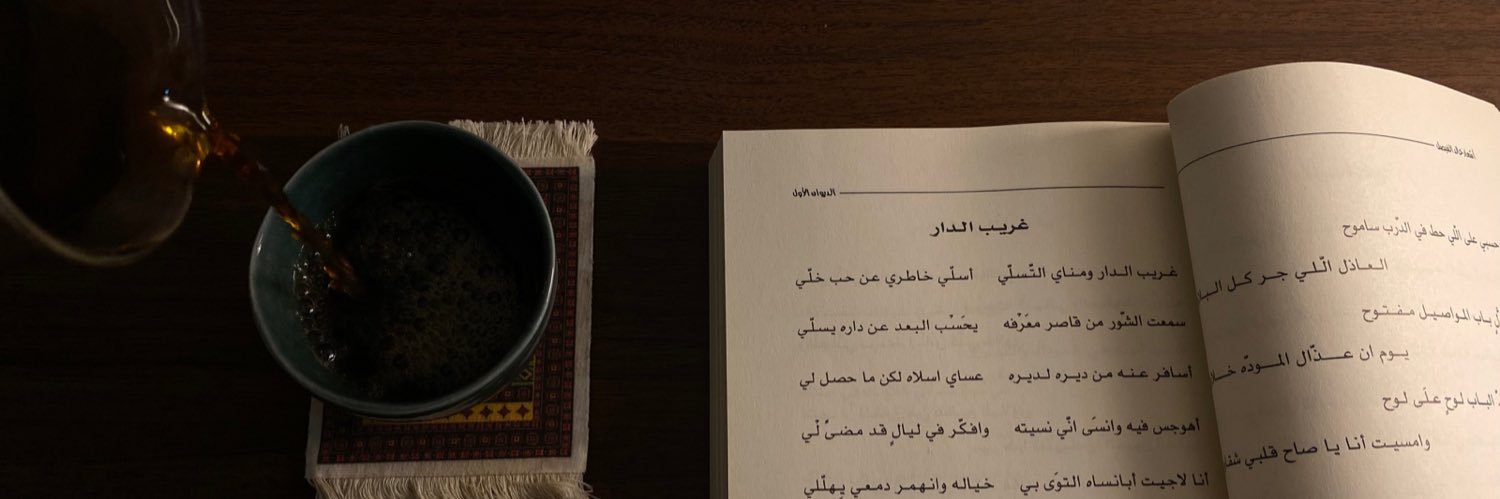 الديوان الأول
غريب الدار
غريب الدار ومناي التّسلّي أسلّي خاطري عن حب خلّي
سمعت الشّور من قاصر معَرْفه يحَسْب البعد عن داره يسلّي
أسافر عنه من ديره لديره عساي اسلاه لكن ما حصل لي
أهوجس فيه وانسَى انّي نسيته وافكّر في ليالٍ قد مضىً لّي
أنا لاجيت أبانساه التوَى بي خياله وانهمر دمعي يهلّلي
حسبي على اللّي حط في الدّرب ساموح
العاذل الّلي جر كل
باب المواصيل مفتوح
يوم ان عذّال المودّه
الباب لوحٍ علَى لوح
وامسيت أنا يا صاح قلبي